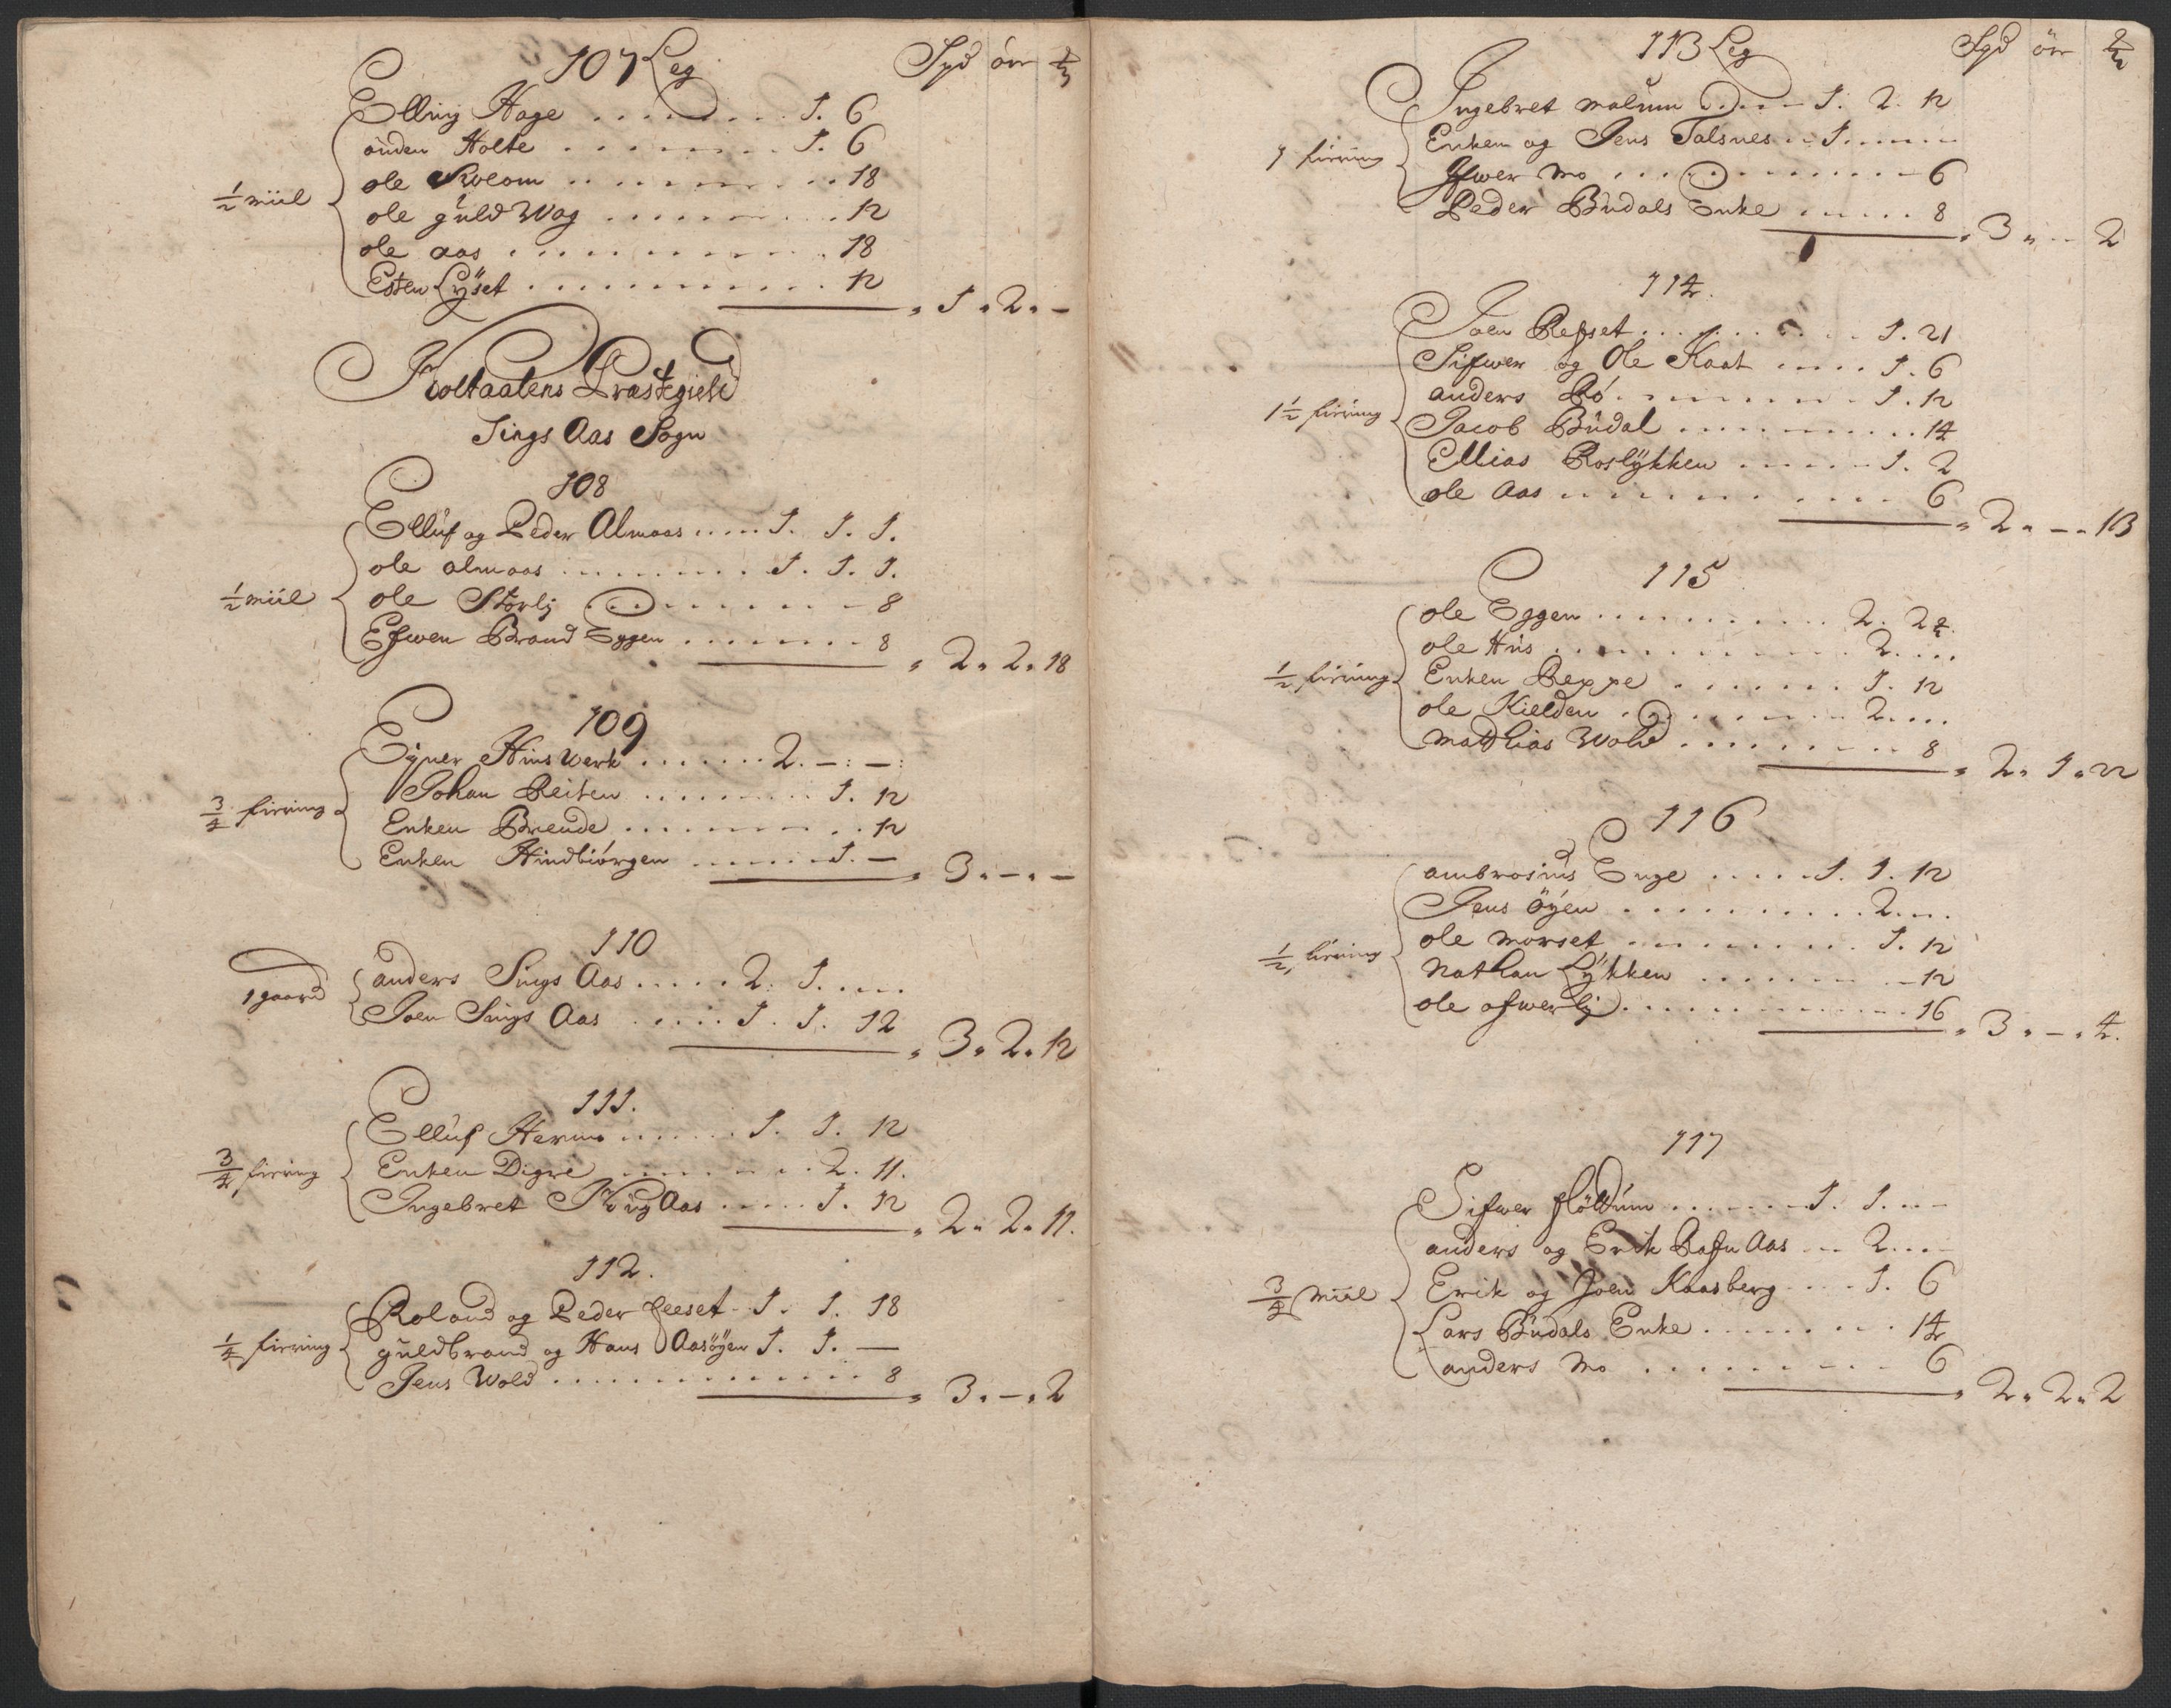 107 Leg Spd ór
Elling Hage . . . . . . . 1. 6
anden Holte . . . . . . . 1. 6
ole Kolom . . . . . . . 18
½ miil ole guld Wog . . . . . . . 12
ole aas . . . . . . . 18
Esten Lÿset . . . . . . . 12
1 „ 2 „ –
Holtaalens Præstegield
Sings Aas Sogn
108
Elluf og Peder Almaas . . . . 1. 1. 1.
ole almaas . . . . . . . 1. 1. 1.
½ miil ole Storlj . . . . . . . 8
Efwen Brand Eggen . . . . . . . 8
2 „ 2 „ 18
109
Eyner Hinswerk . . . . . . . 2. – : – :
¾ firing Johan Reiten . . . . . . . 1. 12
Enken Brende . . . . . . . 12
Enken Hindbiörgen . . . . . . 1. –
3 „ – „ –
110
1 gaard anders Sings Aas . . . . . 2. 1. . . .
Joen Sings Aas . . . . . 1. 1. 12
3 „ 2 „ 12
111.
Elluf Hermo . . . . . . 1. 1. 12
¾ firing Enken Digre . . . . . . . 2. 11.
Ingebret Kug Aas . . . . . 1. 12
2 „ 2 „ 11.
112.
Roland og Peder feeset – 1. 1. 18
¼ firing guldbrand og Hans Aasöyen 1. 1. –
Jens Wold . . . . . . . 8
3 „ – „ 2
113 Leg Spd ör
Ingebret malum . . . – 1. 2. 12
1 firing Enken og Jens Talsnes . . 1. . . . .
Ifwer Mo . . . . . . . 6
Peder Budals Enke . . . . . 8
3 „ – 2
114.
Joen Refset . . . . . . . 1. 21
Sifwer og Ole Kaat . . . . 1. 6
anders Bö . . . . . . . 1. 12
1½ firing Jacob Budal . . . . . . . 14
Ellias Roslÿkken . . . . . 1. 2
ole Aas . . . . . . . 6
2 „ – „ 13
115
ole Eggen . . . . . . . 2. 22.
ole Hus . . . . . . . 2. . . .
½ firing Enken Reppe . . . . . . . 1. 12
ole Kielden . . . . . . . 2. . . .
Matthias Wold . . . . . . . 8
2 „ 1 „ 22
116
ambrosius Enge . . . . . 1. 1. 12
Jens öÿen . . . . . . . 2. . . .
½ firing ole morset . . . . . . . 1. 12
Nathan Lÿkken . . . . . . . 12
ole ofwerlj . . . . . . . 16
3 „ – „ 4.
117
Sifwer flöttum . . . . . . 1. 1. . . –
anders og Erik Rafn Aas . . . 2. . . –
¾ Miil Erik og Joen Kaasberg . . . . 1. 6
Lars Budals Enke . . . . . . . 14
anders Mo . . . . . . . 6
2 „ 2 „ 2